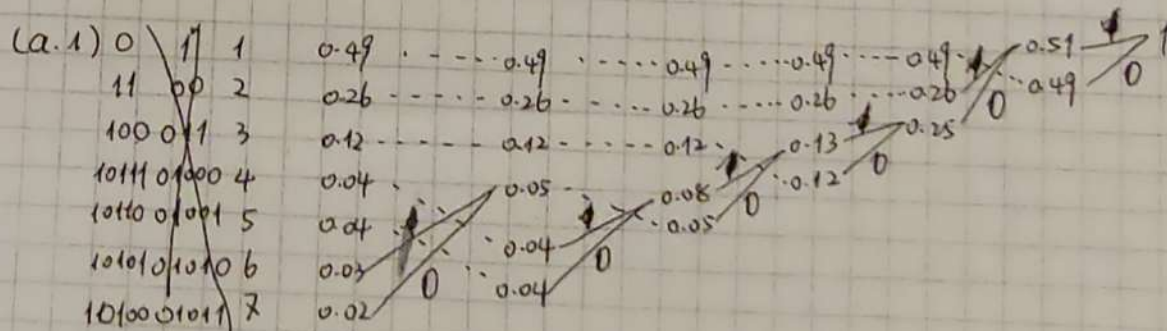 (a.1) 0 1 1 0.49 0.49 0.49 0.49 0.49 1 0.51 1 1
11 00 2 0.26 0.26 0.26 0.26 0.26 0 0.49 0
100 011 3 0.12 0.12 0.12 1 0.13 1 0.25
10111 01000 4 0.04 0.05 1 0.08 0.12 0
10110 01001 5 0.04 1 1 0.05 0
10101 01010 6 0.03 0.04 0
10100 01011 7 0.02 0 0.04